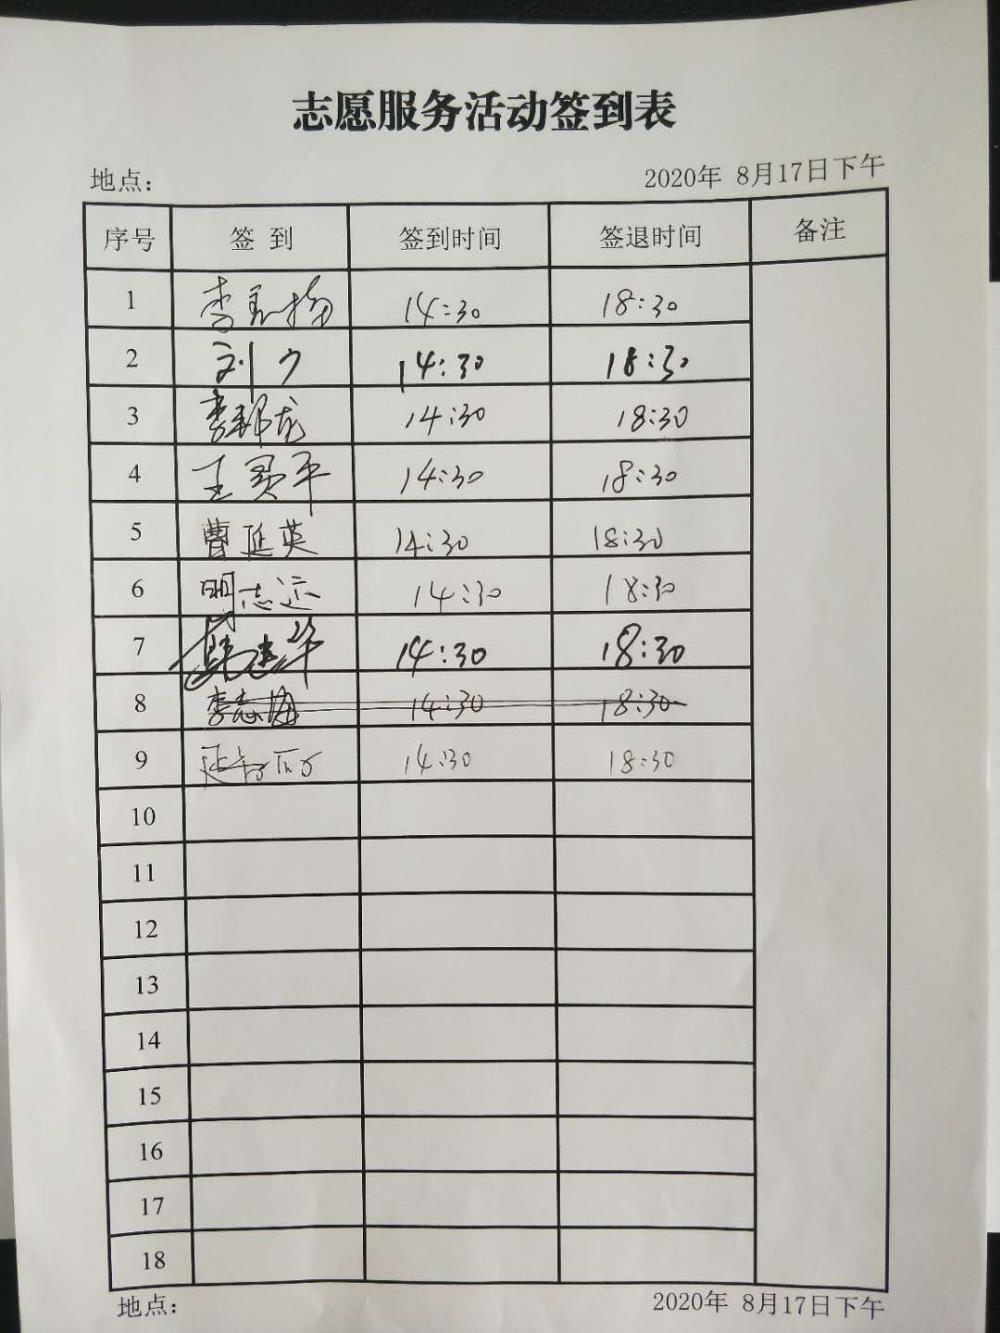 志愿服务活动签到表
地点： 2020年 8月17日下午
序号 签 到 签到时间 签退时间 备注
1 李 扬 14:30 18:30
2 刘 14:30 18:30
3 李邦龙 14:30 18:30
4 王灵平 14:30 18:30
5 曹延英 14:30 18:30
6 明志远 14:30 18:30
7 韩建华 14:30 18:30
8 李志海 14:30 18:30
9 延 14:30 18:30
10
11
12
13
14
15
16
17
18
地点： 2020年 8月17日下午